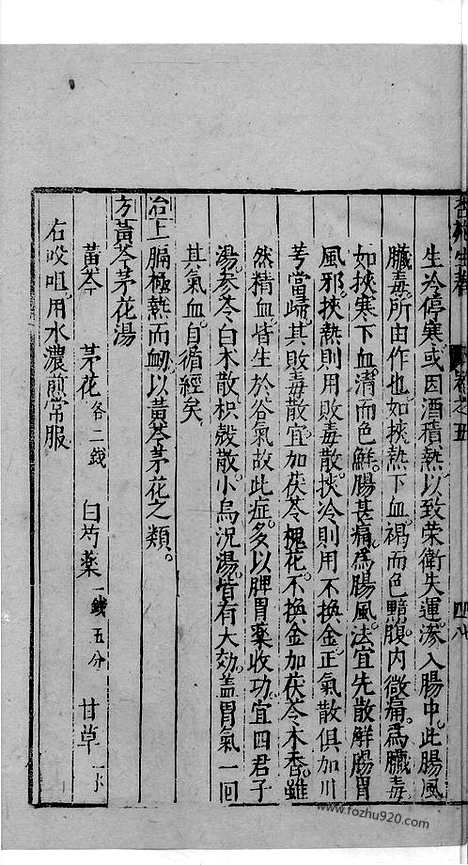 卷之五
生冷停寒或因酒積熱以致荣衛失運滲入腸中此腸風
臟毒所由作也如挾熱下血褐而色黯腹内微痛為臟毒
如挾寒下血清而色鮮腸甚痛為腸風法宜先散鮮腸胃
風邪挾熱則用敗毒散挾冷則用不換金正氣散俱加川
芎當歸其敗毒散宜加茯苓槐花不換金加茯苓木香雖
然精血皆生於谷氣故此症多以脾胃藥收功宜四君子
湯參苓白术散枳殼散小烏沉湯皆有大効蓋胃氣一囘
其氣血自循經矣
治上膈極熱而衂以黃芩茅花之類。
方黃芩茅花湯
黃芩 茅花各二錢 白芍藥一錢五分 甘草一小
右㕮咀用水濃煎常服
www.fozhu920.com